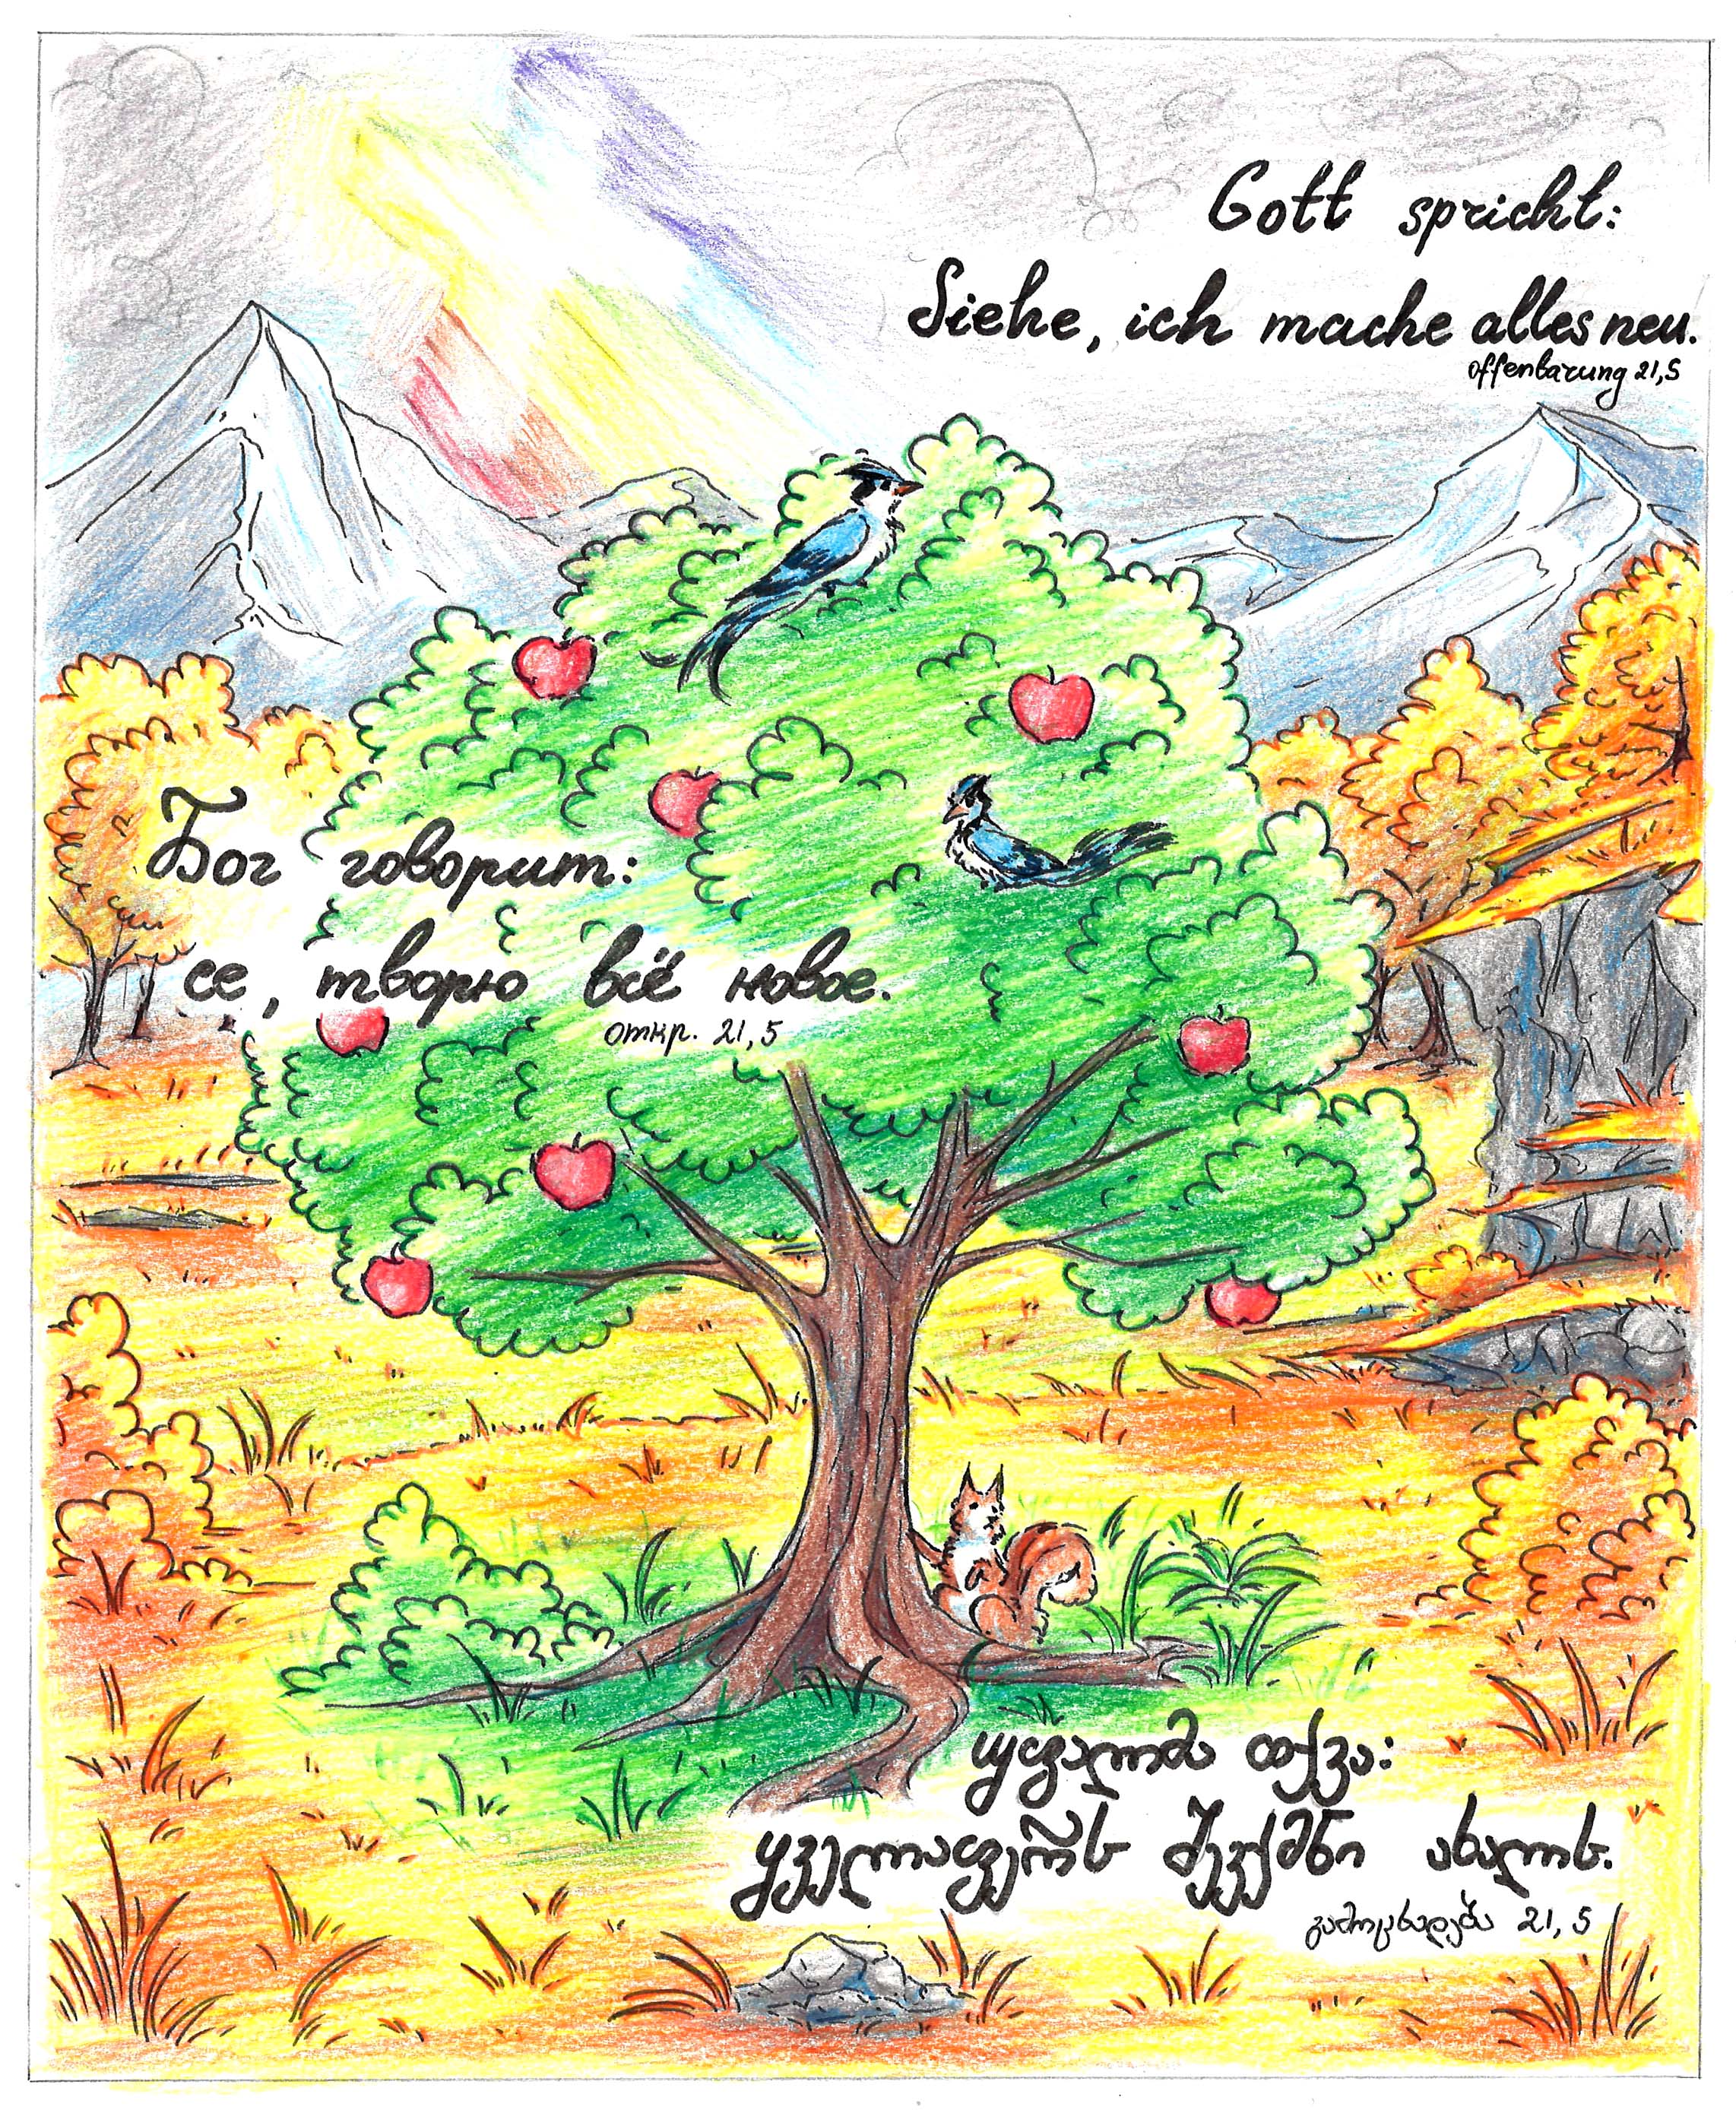 Gott spricht:
Siehe, ich mache alles neu.
Offenbarung 21,5
Бог говорит:
се, творю всё новое.
откр. 21,5
უფალმა თქვა:
ყველაფერს შევქმნი ახალს.
გამოცხადება 21,5